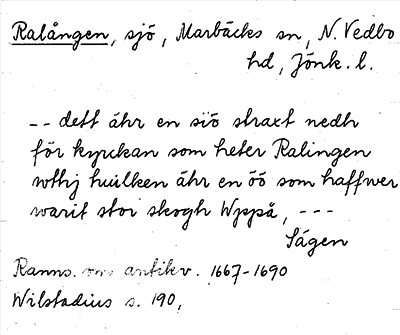 Ralången, sjö, Marbäcks sn, N. Vedbo
hd, Jönk. l.
-- dett ähr en siö straxt nedh
för kyrckan som heter Ralingen
wthj huilken ähr en öö som haffwer
warit stor skogh Wppå, ---
Sägen
Ranns. om antikv. 1667-1690
Wilstadius s. 190,